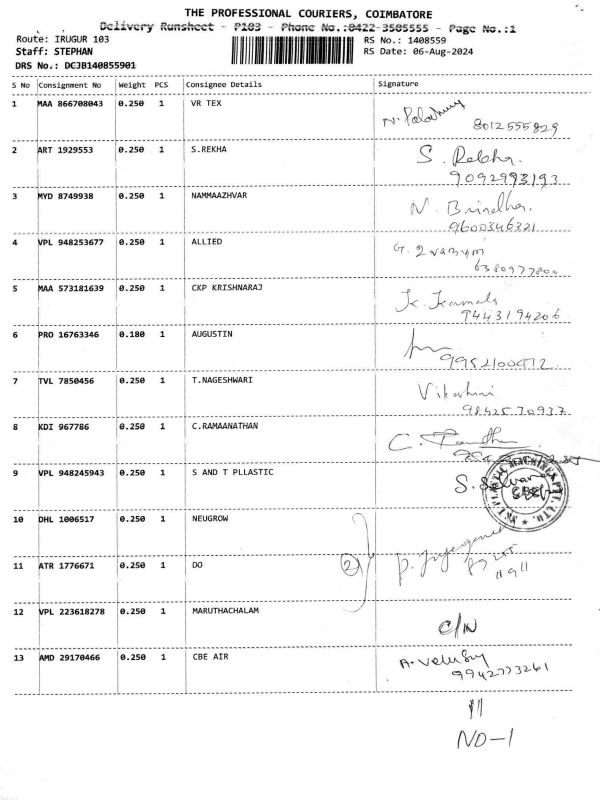 THE PROFESSIONAL COURIERS, COIMBATORE
Delivery Runsheet - P103 - Phone No.:0422-3505555 - Page No.:1
Route: IRUGUR 103 RS No.: 1408559
Staff: STEPHAN RS Date: 06-Aug-2024
DRS No.: DCJB140855901
S No Consignment No Weight PCS Consignee Details Signature
1 MAA 866708043 0.250 1 VR TEX
8012555829
2 ART 1929553 0.250 1 S.REKHA S. Rekha.
9092993193
3 MYD 8749938 0.250 1 NAMMAAZHVAR N. Brindha.
9600346321
4 VPL 948253677 0.250 1 ALLIED
6380977800
5 MAA 573181639 0.250 1 CKP KRISHNARAJ K. Kamala
9443194206
6 PRO 16763346 0.180 1 AUGUSTIN
9952100472
7 TVL 7850456 0.250 1 T.NAGESHWARI
9842570937
8 KDI 967786 0.250 1 C.RAMAANATHAN
9 VPL 948245943 0.250 1 S AND T PLLASTIC
10 DHL 1006517 0.250 1 NEUGROW
11 ATR 1776671 0.250 1 DO 2
12 VPL 223618278 0.250 1 MARUTHACHALAM C/N
13 AMD 29170466 0.250 1 CBE AIR
9942773261
11
ND-1